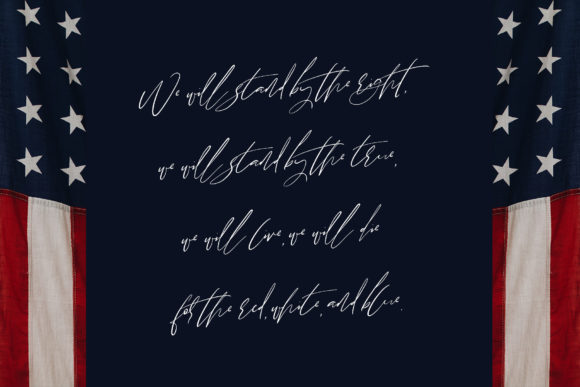 We will stand by the right,
we will stand by the true,
we will live, we will die
for the red, white, and blue.